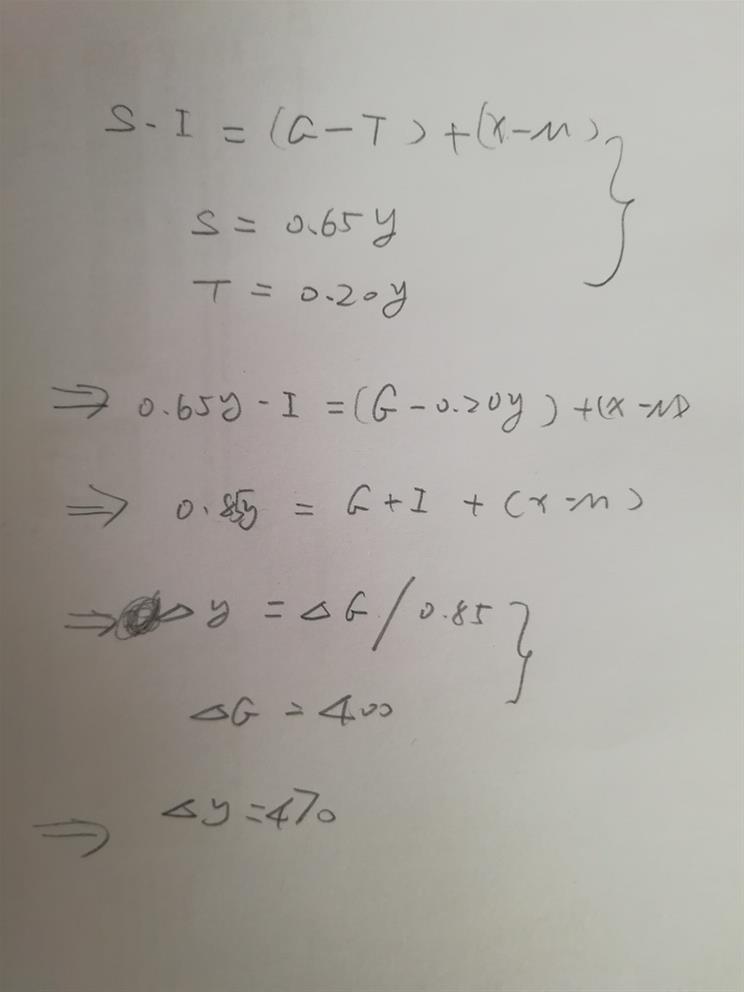 S - I = (G - T) + (X - M)
S = 0.65y
T = 0.20y
⇒ 0.65y - I = (G - 0.20y) + (X - M)
⇒ 0.85y = G + I + (X - M)
⇒ △y = △G / 0.85
△G = 400
⇒ △y = 470